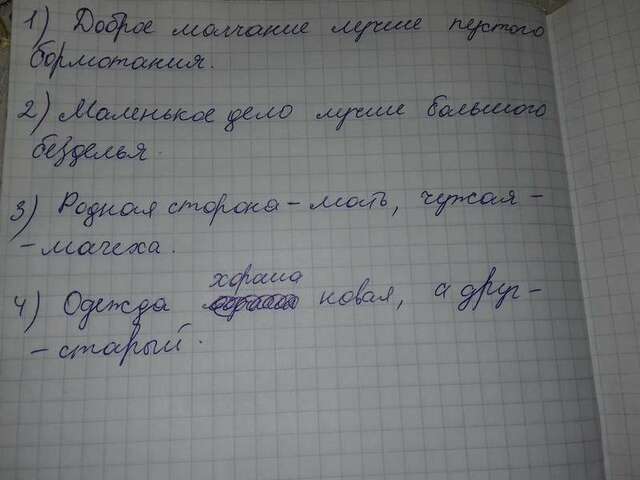 1) Доброе молчание лучше пустого
бормотания.
2) Маленькое дело лучше большого
безделья.
3) Родная сторона - мать, чужая -
- мачеха.
хороша
4) Одежда новая, а друг -
- старый.